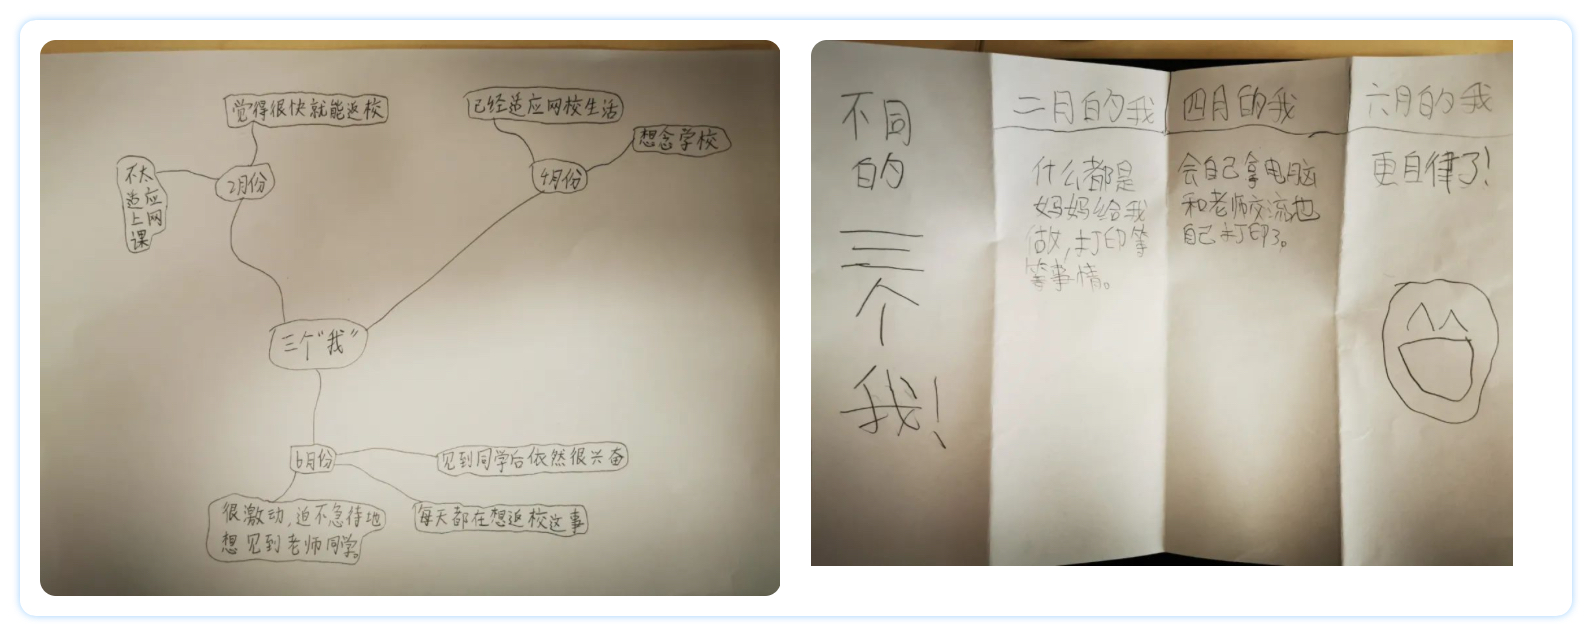 觉得很快就能返校
不太
适应
上网
课
2月份
已经适应网校生活
想念学校
4月份
三个“我”
6月份
见到同学后依然很兴奋
每天都在想返校这事
很激动,迫不急待地
想见到老师同学。
不同
的
三
个
我!
二月的我
什么都是
妈妈给我
做,打印等
等事情。
四月的我
会自己拿电脑
和老师交流也
自己打印了。
六月的我
更自律了!